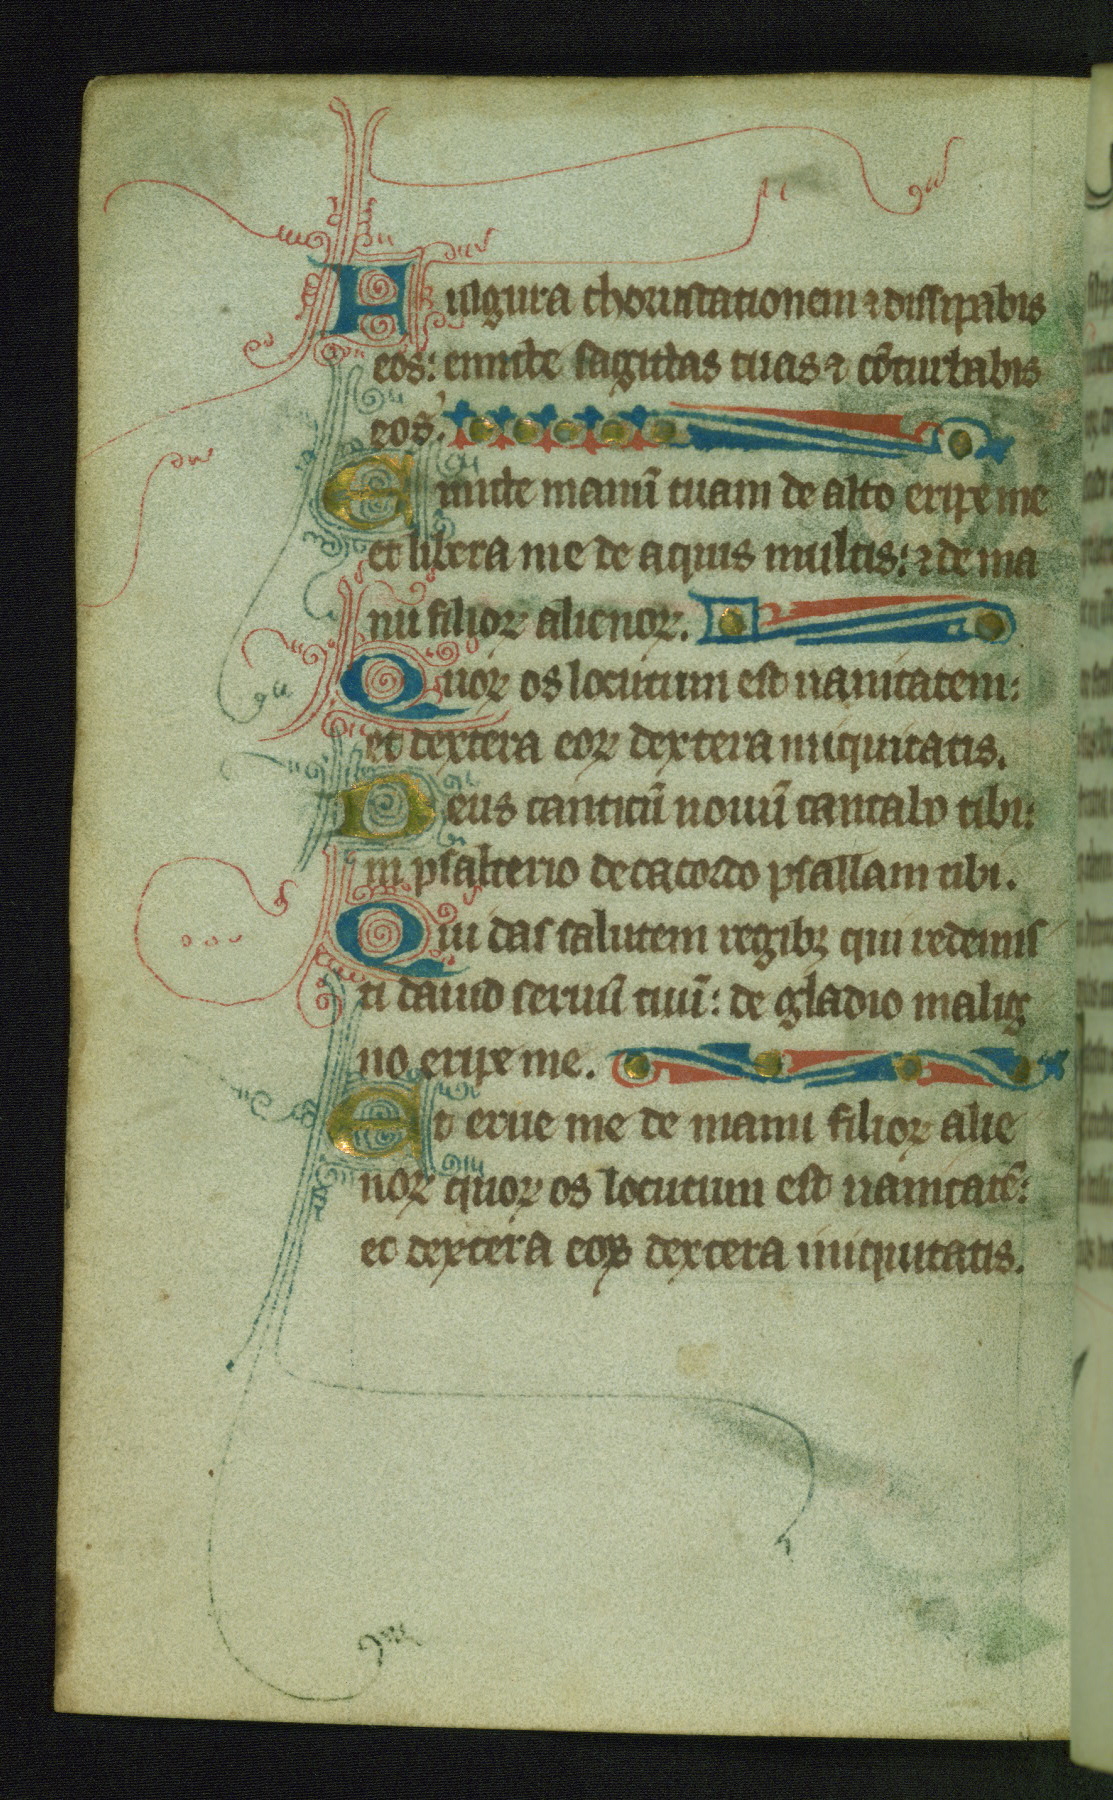 Fulgura choruscationem ⁊ dissipabis
eos: emitte sagittas tuas ⁊ cōturbabis
eos.
Emitte manū tuam de alto eripe me
et libera me de aquis multis: ⁊ de ma
nu filioꝝ alienoꝝ.
Quoꝝ os locutum est uanitatem:
et dextera eoꝝ dextera iniquitatis.
Deus canticū nouū cantabo tibi:
in psalterio decacordo psallam tibi.
Qui das salutem regibꝫ qui redemis
ti dauid seruū tuū: de gladio malig
no eripe me.
Et erue me de manu filioꝝ alie
noꝝ quoꝝ os locutum est uanitatē:
et dextera eoꝝ dextera iniquitatis.